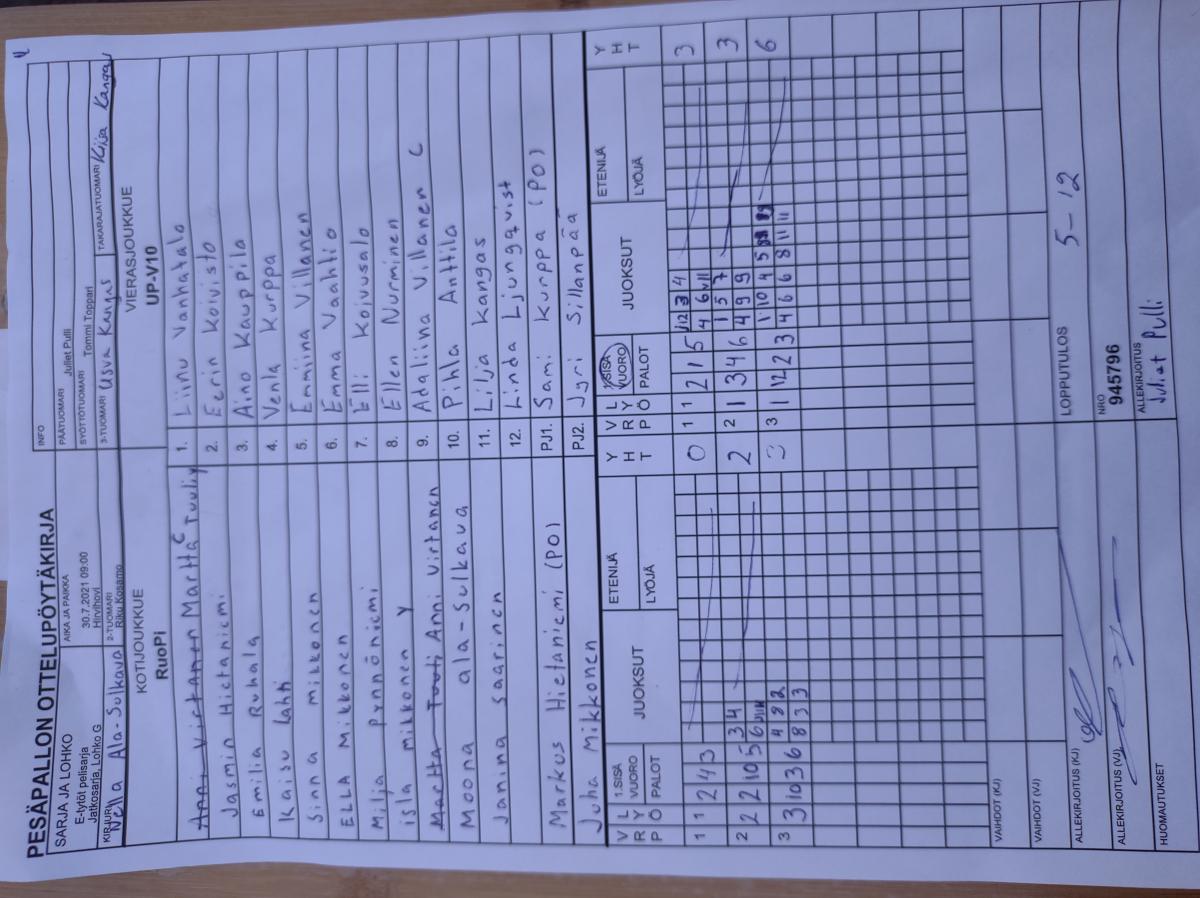 PESÄPALLON OTTELUPÖYTÄKIRJA
SARJA JA LOHKO
E-tytöt pelisarja
Jatkosarja, Lohko G
AIKA JA PAIKKA
30.7.2021 09:00
Hirvihovi
INFO
PÄÄTUOMARI Juliet Pulli
SYÖTTÖTUOMARI Tommi Toppari
KIRJURI Nella Ala-Sulkava
2-TUOMARI Riku Kosamo
3-TUOMARI Usva Kangas
TAKARAJATUOMARI Kiia Kangas
KOTIJOUKKUE
RuoPi
VIERASJOUKKUE
UP-V10
Anni Virtanen Martta Tuuliy C
1. Liinu Vanhatalo
Jasmin Hietaniemi
2. Eerin Koivisto
Emilia Ruhala
3. Aino Kauppila
Kaisu Lahti
4. Venla Kurppa
Sinna mikkonen
5. Emmina Villanen
ELLA Mikkonen
6. Emma Vaahtio
Milja Pynnöniemi
7. Elli Koivusalo
isla mikkonen Y
8. Ellen Nurminen
Martta Tuuli Anni Virtanen
9. Adaliina Villanen C
Moona ala-Sulkava
10. Pihla Anttila
Janina Saarinen
11. Lilja Kangas
12. Linda Ljungqvist
Markus Hietaniemi (PO)
PJ1. Sami Kurppa (PO)
Juha Mikkonen
PJ2. Jyri Sillanpää
V R P L Y Ö 1.SISÄ VUORO PALOT JUOKSUT ETENIJÄ LYÖJÄ Y H T
V R P L Y Ö 1.SISÄ VUORO PALOT JUOKSUT ETENIJÄ LYÖJÄ Y H T
1 1 2 4 3 0
1 1 2 1 5 12 3 4 3
4 6 VII
2 2 2 10 5 3 4 2
6
2 1 3 4 6 1 5 7 3
4 9 9
3 3 10 3 6 4 8 2 3
8 3 3
3 1 12 2 3 1 10 4 5 6
4 6 6 8 11 11
VAIHDOT (KJ)
VAIHDOT (VJ)
ALLEKIRJOITUS (KJ)
LOPPUTULOS 5-12
ALLEKIRJOITUS (VJ)
NRO
945796
HUOMAUTUKSET
ALLEKIRJOITUS
Juliet Pulli